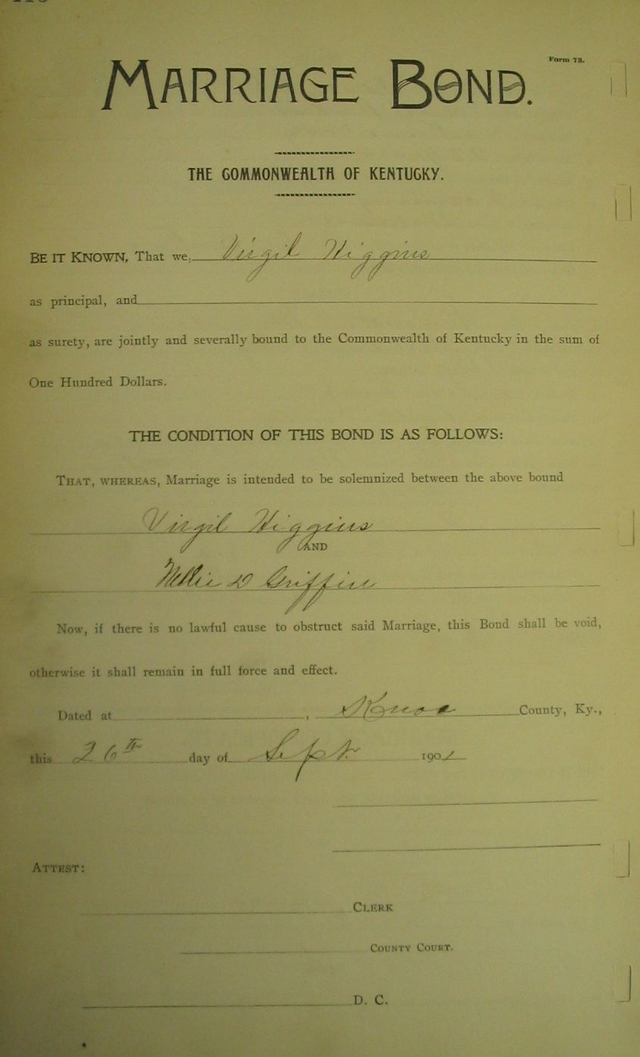 Form 73.
MARRIAGE BOND.
THE COMMONWEALTH OF KENTUCKY.
BE IT KNOWN, That we, Virgil Higgins
as principal, and
as surety, are jointly and severally bound to the Commonwealth of Kentucky in the sum of
One Hundred Dollars.
THE CONDITION OF THIS BOND IS AS FOLLOWS:
THAT, WHEREAS, Marriage is intended to be solemnized between the above bound
Virgil Higgins
AND
Nellie D Griffin
Now, if there is no lawful cause to obstruct said Marriage, this Bond shall be void,
otherwise it shall remain in full force and effect.
Dated at , Knox County, Ky.,
this 26th day of Sept. 1901
ATTEST:
CLERK
COUNTY COURT.
D. C.